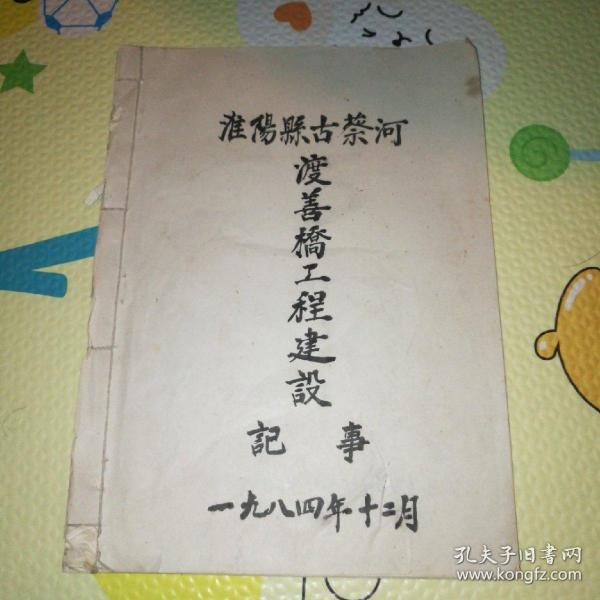 淮陽縣古蔡河
渡善橋工程建設
記事
一九八四年十二月
孔夫子旧書网
www.kongfz.com